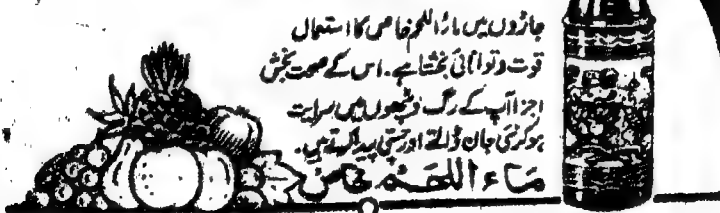 جاڑوں میں ماءاللحم خاص کا استعمال
قوت و توانائی بخشتا ہے۔ اس کے صحت بخش
اجزا آپ کے رگ و پٹھوں میں سرایت
ہوکر نئی جان ڈالتے اور چستی پیدا کرتے ہیں۔
ماء اللحم خاص